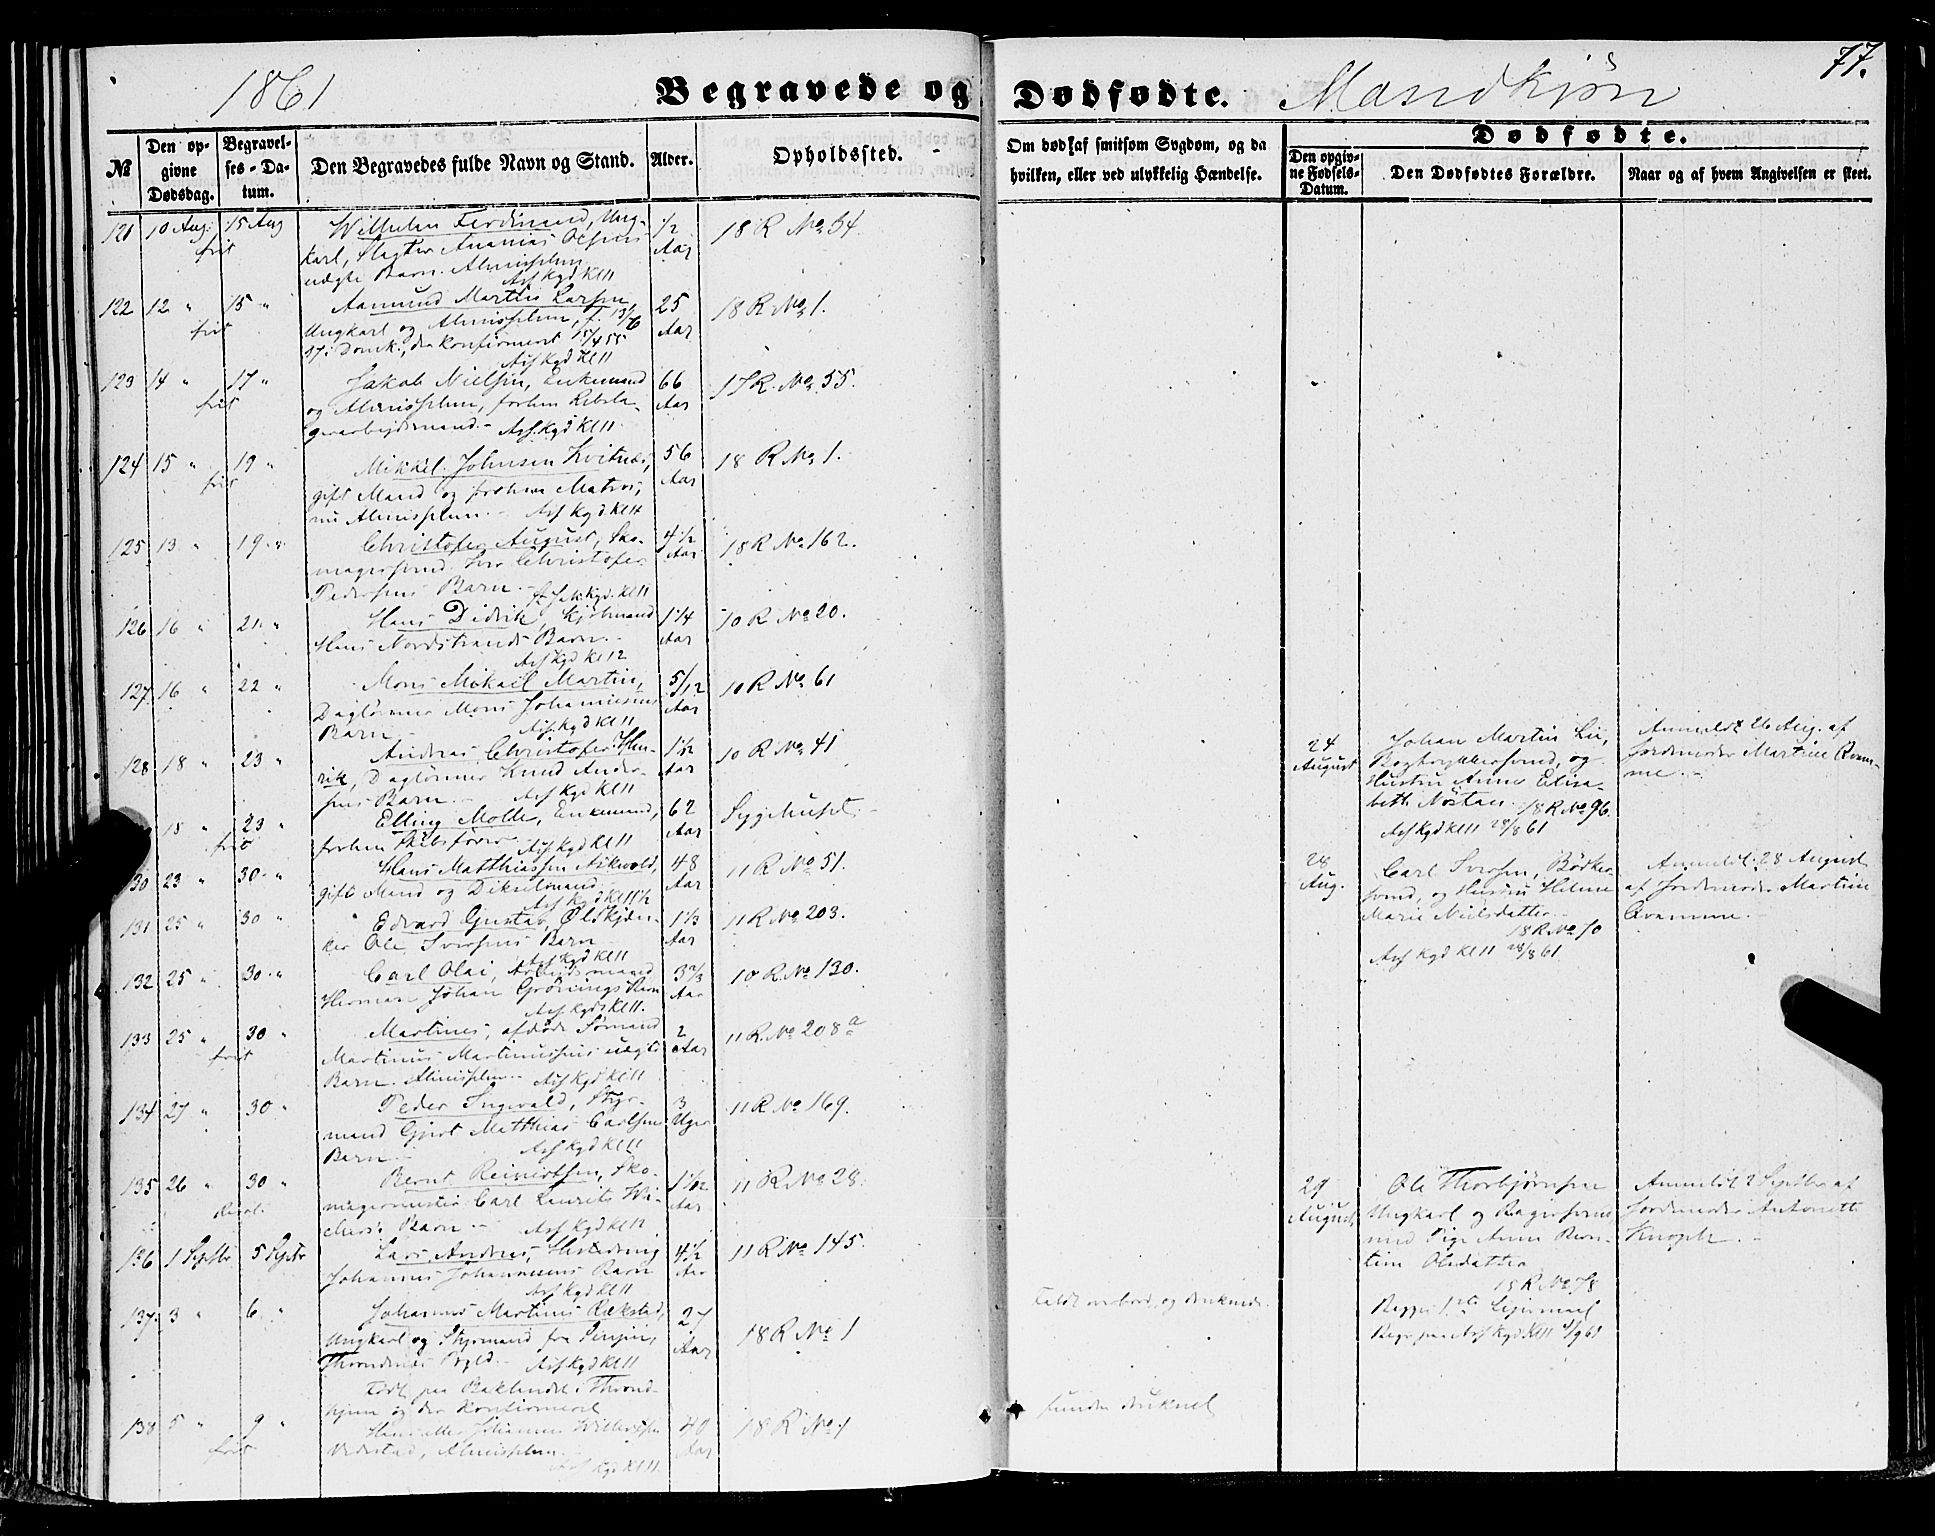 1861
Begravede og Dødfødte. Mandkjøn
77.
№
Den opgivne Dødsdag.
Begravelses-Datum.
Den Begravedes fulde Navn og Stand.
Alder.
Opholdssted.
Om død af smitsom Sygdom, og da hvilken, eller ved ulykkelig Hændelse.
Dødfødte.
Den opgivne Fødsels-Datum.
Den Dødfødtes Forældre.
Naar og af hvem Angivelsen er skeet.
121 10 Aug: 15 Aug Wilhelm Ferdinand, Ung- 1/2 Aar 18 R No 54.
frit karl, Slagter Ananias Olsens
uægte Barn. Almisselem
Ass Kgd Kl 11
122 12 " 15 " Aamund Martin Larsen 25 Aar 18 R No 1.
frit Ungkarl og Almisselem, f. 13/6
37 i Domk:, der konfirmeret 15/4 55
Ass Kgd Kl 11
123 14 " 17 " Jakob Nielsen, Enkemand 66 Aar 17 R. No 55.
frit og Almisselem, forhen Rebsla-
gerarbeidsmand. - Ass. Kgd Kl 11.
124 15 " 19 " Mikkel Johnsen Kvitnes, 56 Aar 18 R No 1.
frit gift Mand og forhen Matros,
nu Almisselem. - Ass Kgd Kl 11
125 13 " 19 " Christofer August, Sko- 4 1/2 Aar 18 R No 162.
magersvend Christofer
Pedersens Barn. - St. Jak. Kgd. Kl 11
126 16 " 21 " Hans Didrik, Kjøbmand 1 1/4 Aar 10 R No 20.
Hans Nordstrands Barn. -
Ass Kgd Kl 12
127 16 " 22 " Mons Mikail Martin, 5/12 Aar 10 R No 61
Daglønner Mons Johannesens
Barn - Ass. Kgd Kl 11
128 18 " 23 " Andreas Christofer Hen- 1 1/2 Aar 10 R No 41
rik, Daglønner Knud Ander-
sens Barn. - Ass Kgd Kl 11
18 " 23 " Elling Molde, Enkemand, 62 Aar Sygehuset. -
frit forhen Skibsfører Ass Kgd Kl 11
130 23 " 30 " Hans Matthiassen Askvold, 48 Aar 11 R No 51.
gift Mand og Dikselmand,
Ass Kgd Kl 11 1/2
131 25 " 30 " Edvard Gustav, Ølskjæn- 1 1/3 Aar 11 R No 203.
ker Ole Iversens Barn
Ass Kgd Kl 11
132 25 " 30 " Carl Olai, Arbeidsmand 3 2/3 Aar 10 R. No 130.
Herman Johan Grønings Barn
Ass Kgds Kl 11.
133 25 " 30 " Martines, afdøde Sømand 2 Aar 11 R. No 208 a
frit Martinus Martinussens uægte
Barn. Almisselem - Ass Kgd Kl 11
134 27 " 30 " Peder Ingvald, Styr- 3 Uger 11 R No 169.
mand Gjert Matthias Carlsens
Barn - Ass Kgd Kl 11
135 26 " 30 " Bernt Reinertsen, Sko- 1 1/12 Aar 11 R No 28.
magermester Carl Laurits Wi-
Barn - Ass Kgd Kl 12
136 1 Septbr 5 Septbr Lars Andreas, 4 1/2 Aar 11 R No 145.
Johannes Johannesens Barn
Ass Kgd Kl 11
137. 3 " 6 " Johannes Martinus Rækstad, 27 Aar 18 R No 1
Ungkarl og Styrmand fra
Ass. Kgd Kl 11
Faldt overbord og druknede.
Født paa Baklandet i Thrond-
hjem og der konfirmeret
138 5 " 9 " Johannes 40 Aar 18 R No 1
frit Almisselem. -
Ass Kgd Kl 11.
funden druknet
24 August Johan Martin Lie,
Bogtrykkersvend, og
Hustru Anna Elisa-
beth Nøstau. 18 R No 96.
Ass Kgd Kl 11 28/8 61
Anmeldt 26 Aug. af
Jordemoder Martine Qvam-
me. -
28 Aug. Carl Iversen, Bødker-
svend, og Hustru Helene
Marie Nielsdatter -
18 R No 70
Ass Kgd Kl 11 28/8 61
Anmeldt 28 August
af Jordemoder Martine
Qvamme. -
29 August Ole Thorbjørnsen
Ungkarl og Bagersvend
med Pige Anne Beren-
tine Olsdatter
15 R No 78
Begges 1ste Leiermaal
Begr. paa Ass Kgd Kl 11 4/9 61
Anmeldt 2 Septbr af
Jordemoder Antonette
Knoph. -